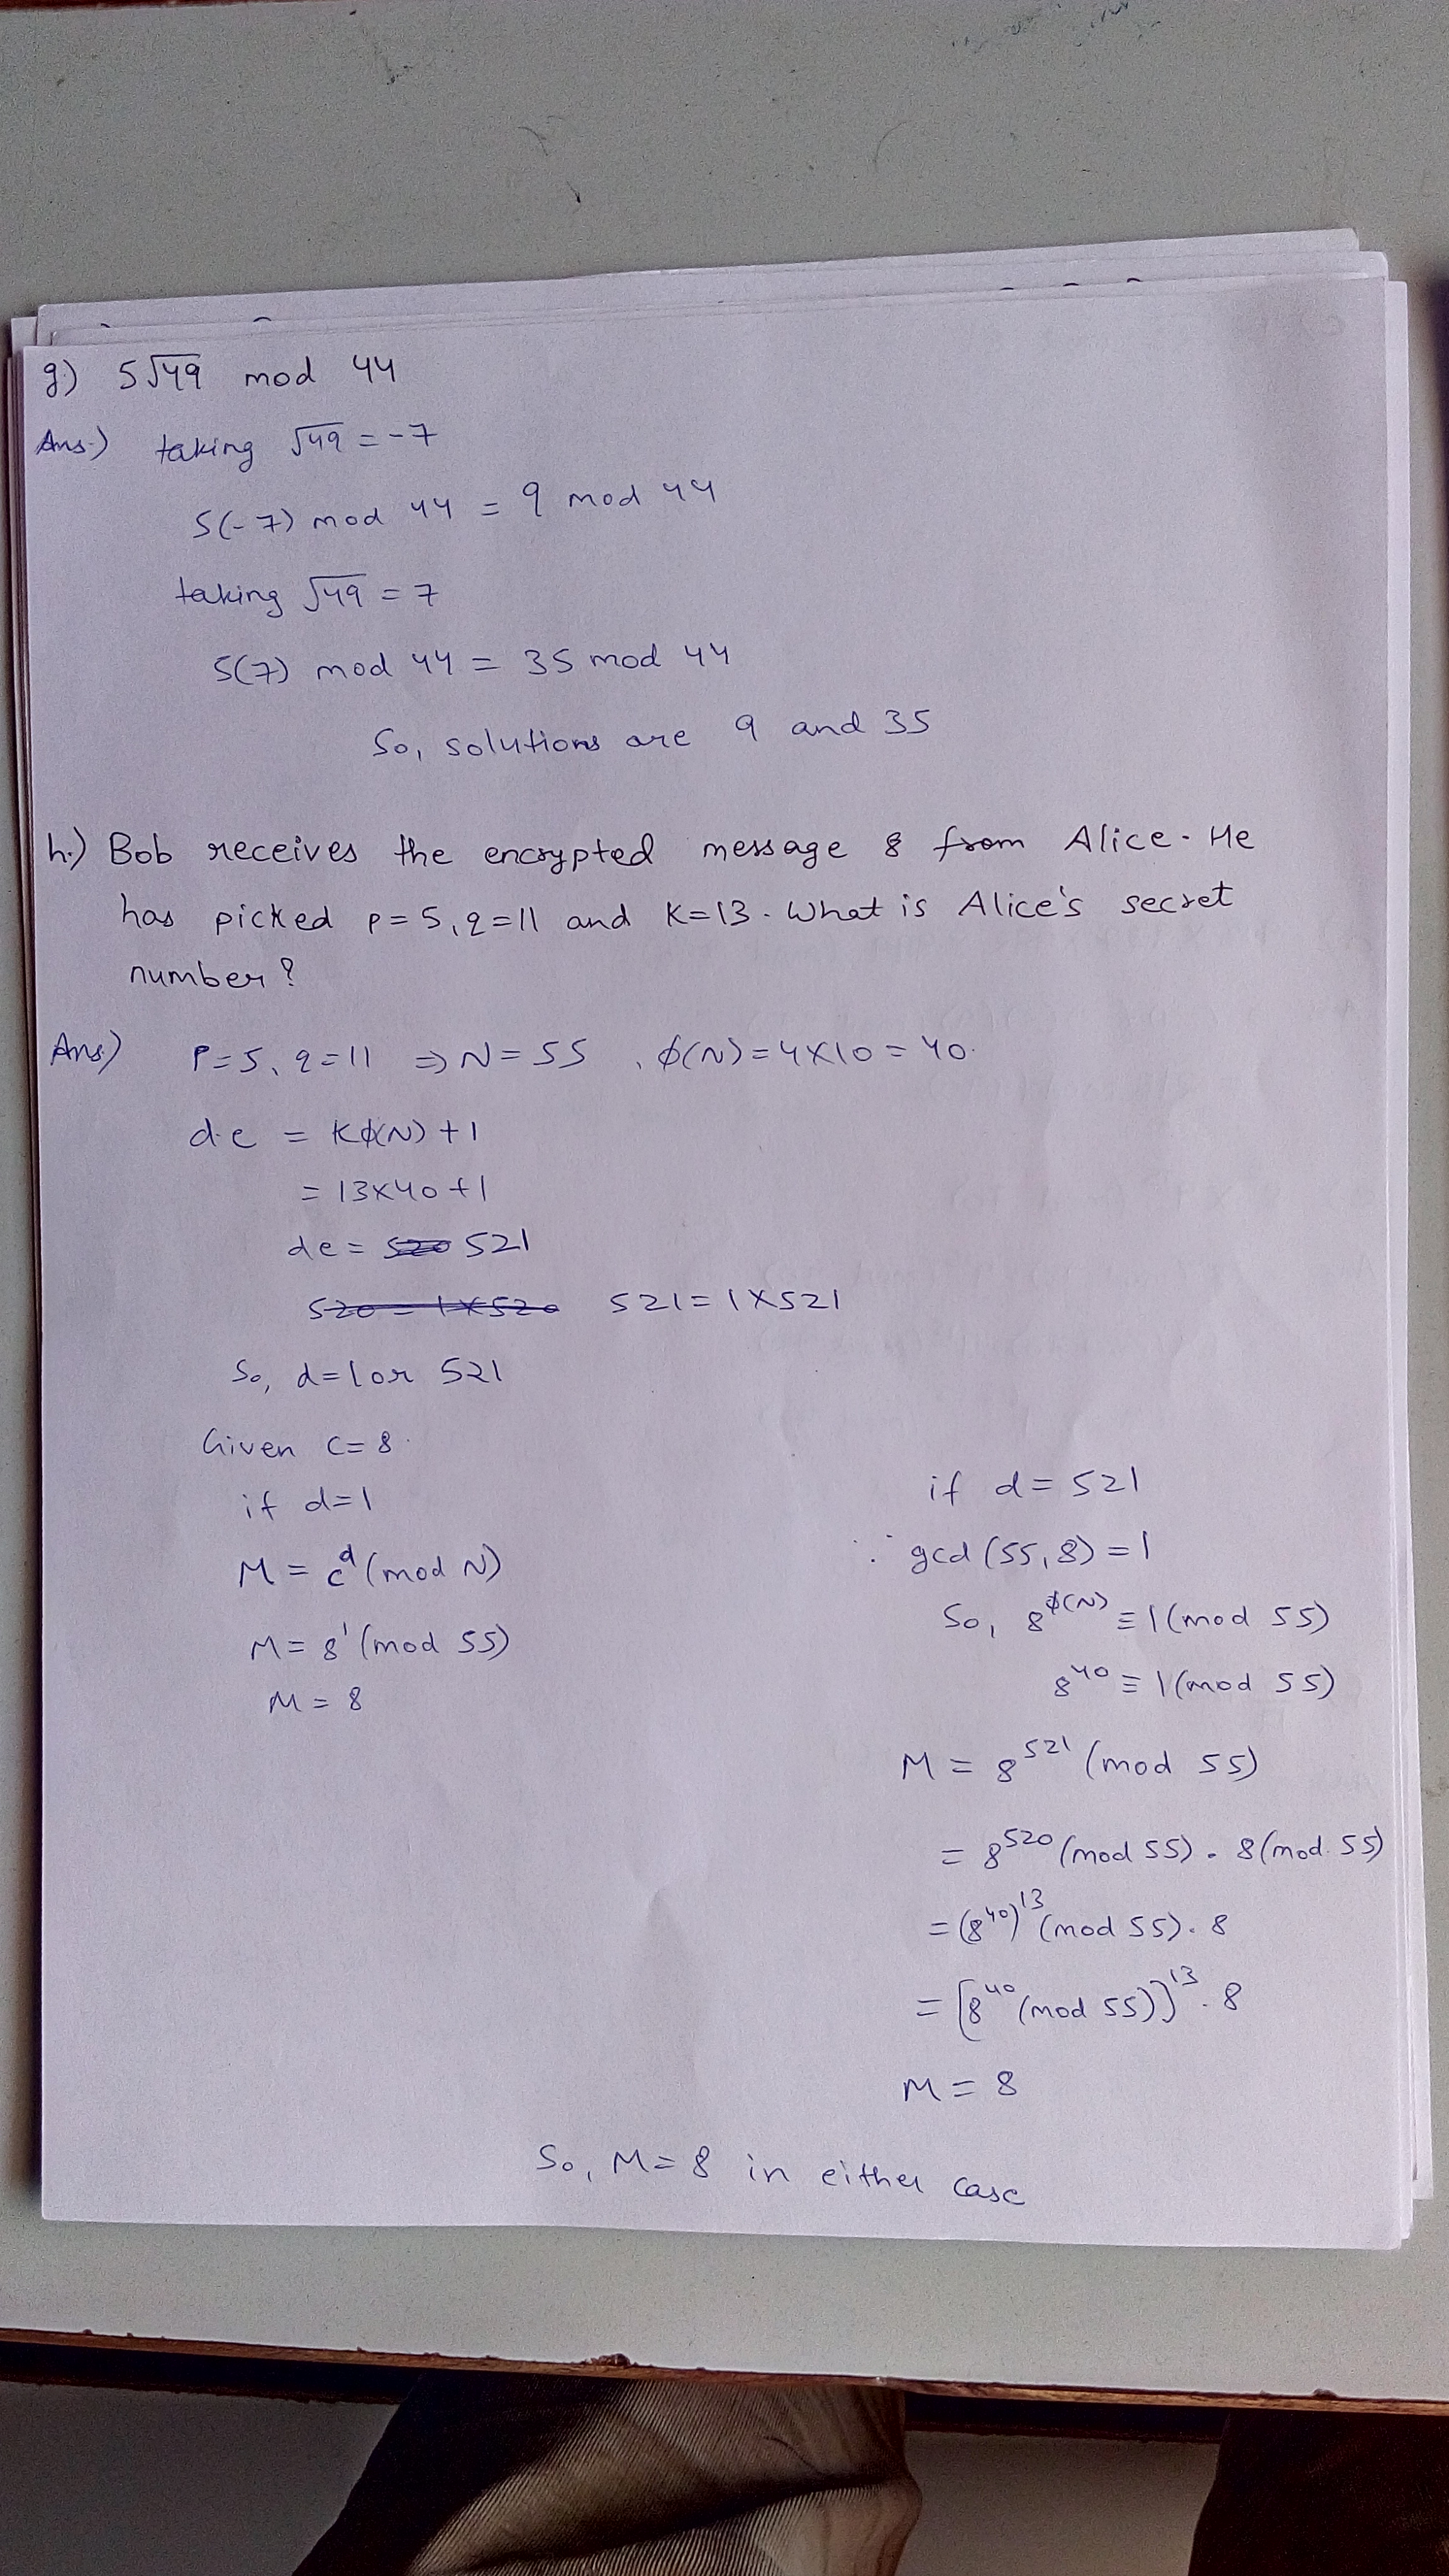 g.) 5√49 mod 44
Ans.) taking √49 = -7
5(-7) mod 44 = 9 mod 44
taking √49 = 7
5(7) mod 44 = 35 mod 44
So, solutions are 9 and 35
h.) Bob receives the encrypted message 8 from Alice. He
has picked p=5, q=11 and K=13. What is Alice's secret
number?
Ans) P=5, q=11 ⇒ N=55, ϕ(N)=4×10=40.
d.e = Kϕ(N)+1
= 13×40+1
de = 520 521
520 = 1×520 521=1×521
So, d=1 or 521
Given C=8.
if d=1
M = c^d (mod N)
M = 8^1 (mod 55)
M = 8
if d = 521
∵ gcd (55,8) = 1
So, 8^ϕ(N) ≡ 1 (mod 55)
8^40 ≡ 1 (mod 55)
M = 8^521 (mod 55)
= 8^520 (mod 55) . 8 (mod 55)
= (8^40)^13 (mod 55) . 8
= [8^40 (mod 55)]^13 . 8
M = 8
So, M=8 in either case